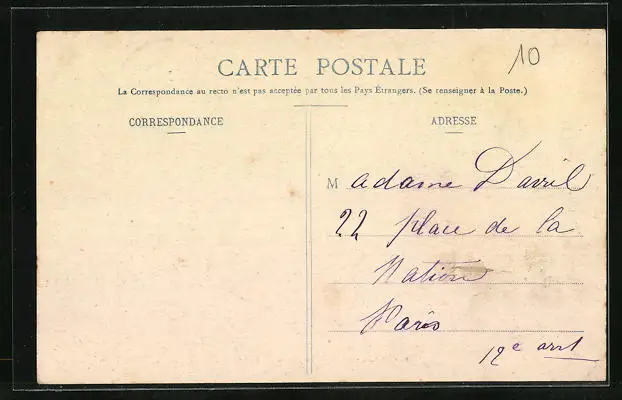 10
CARTE POSTALE
La Correspondance au recto n'est pas acceptée par tous les Pays Étrangers. (Se renseigner à la Poste.)
CORRESPONDANCE
ADRESSE
Madame Davril
22 place de la
Nation
Paris
12e arrt